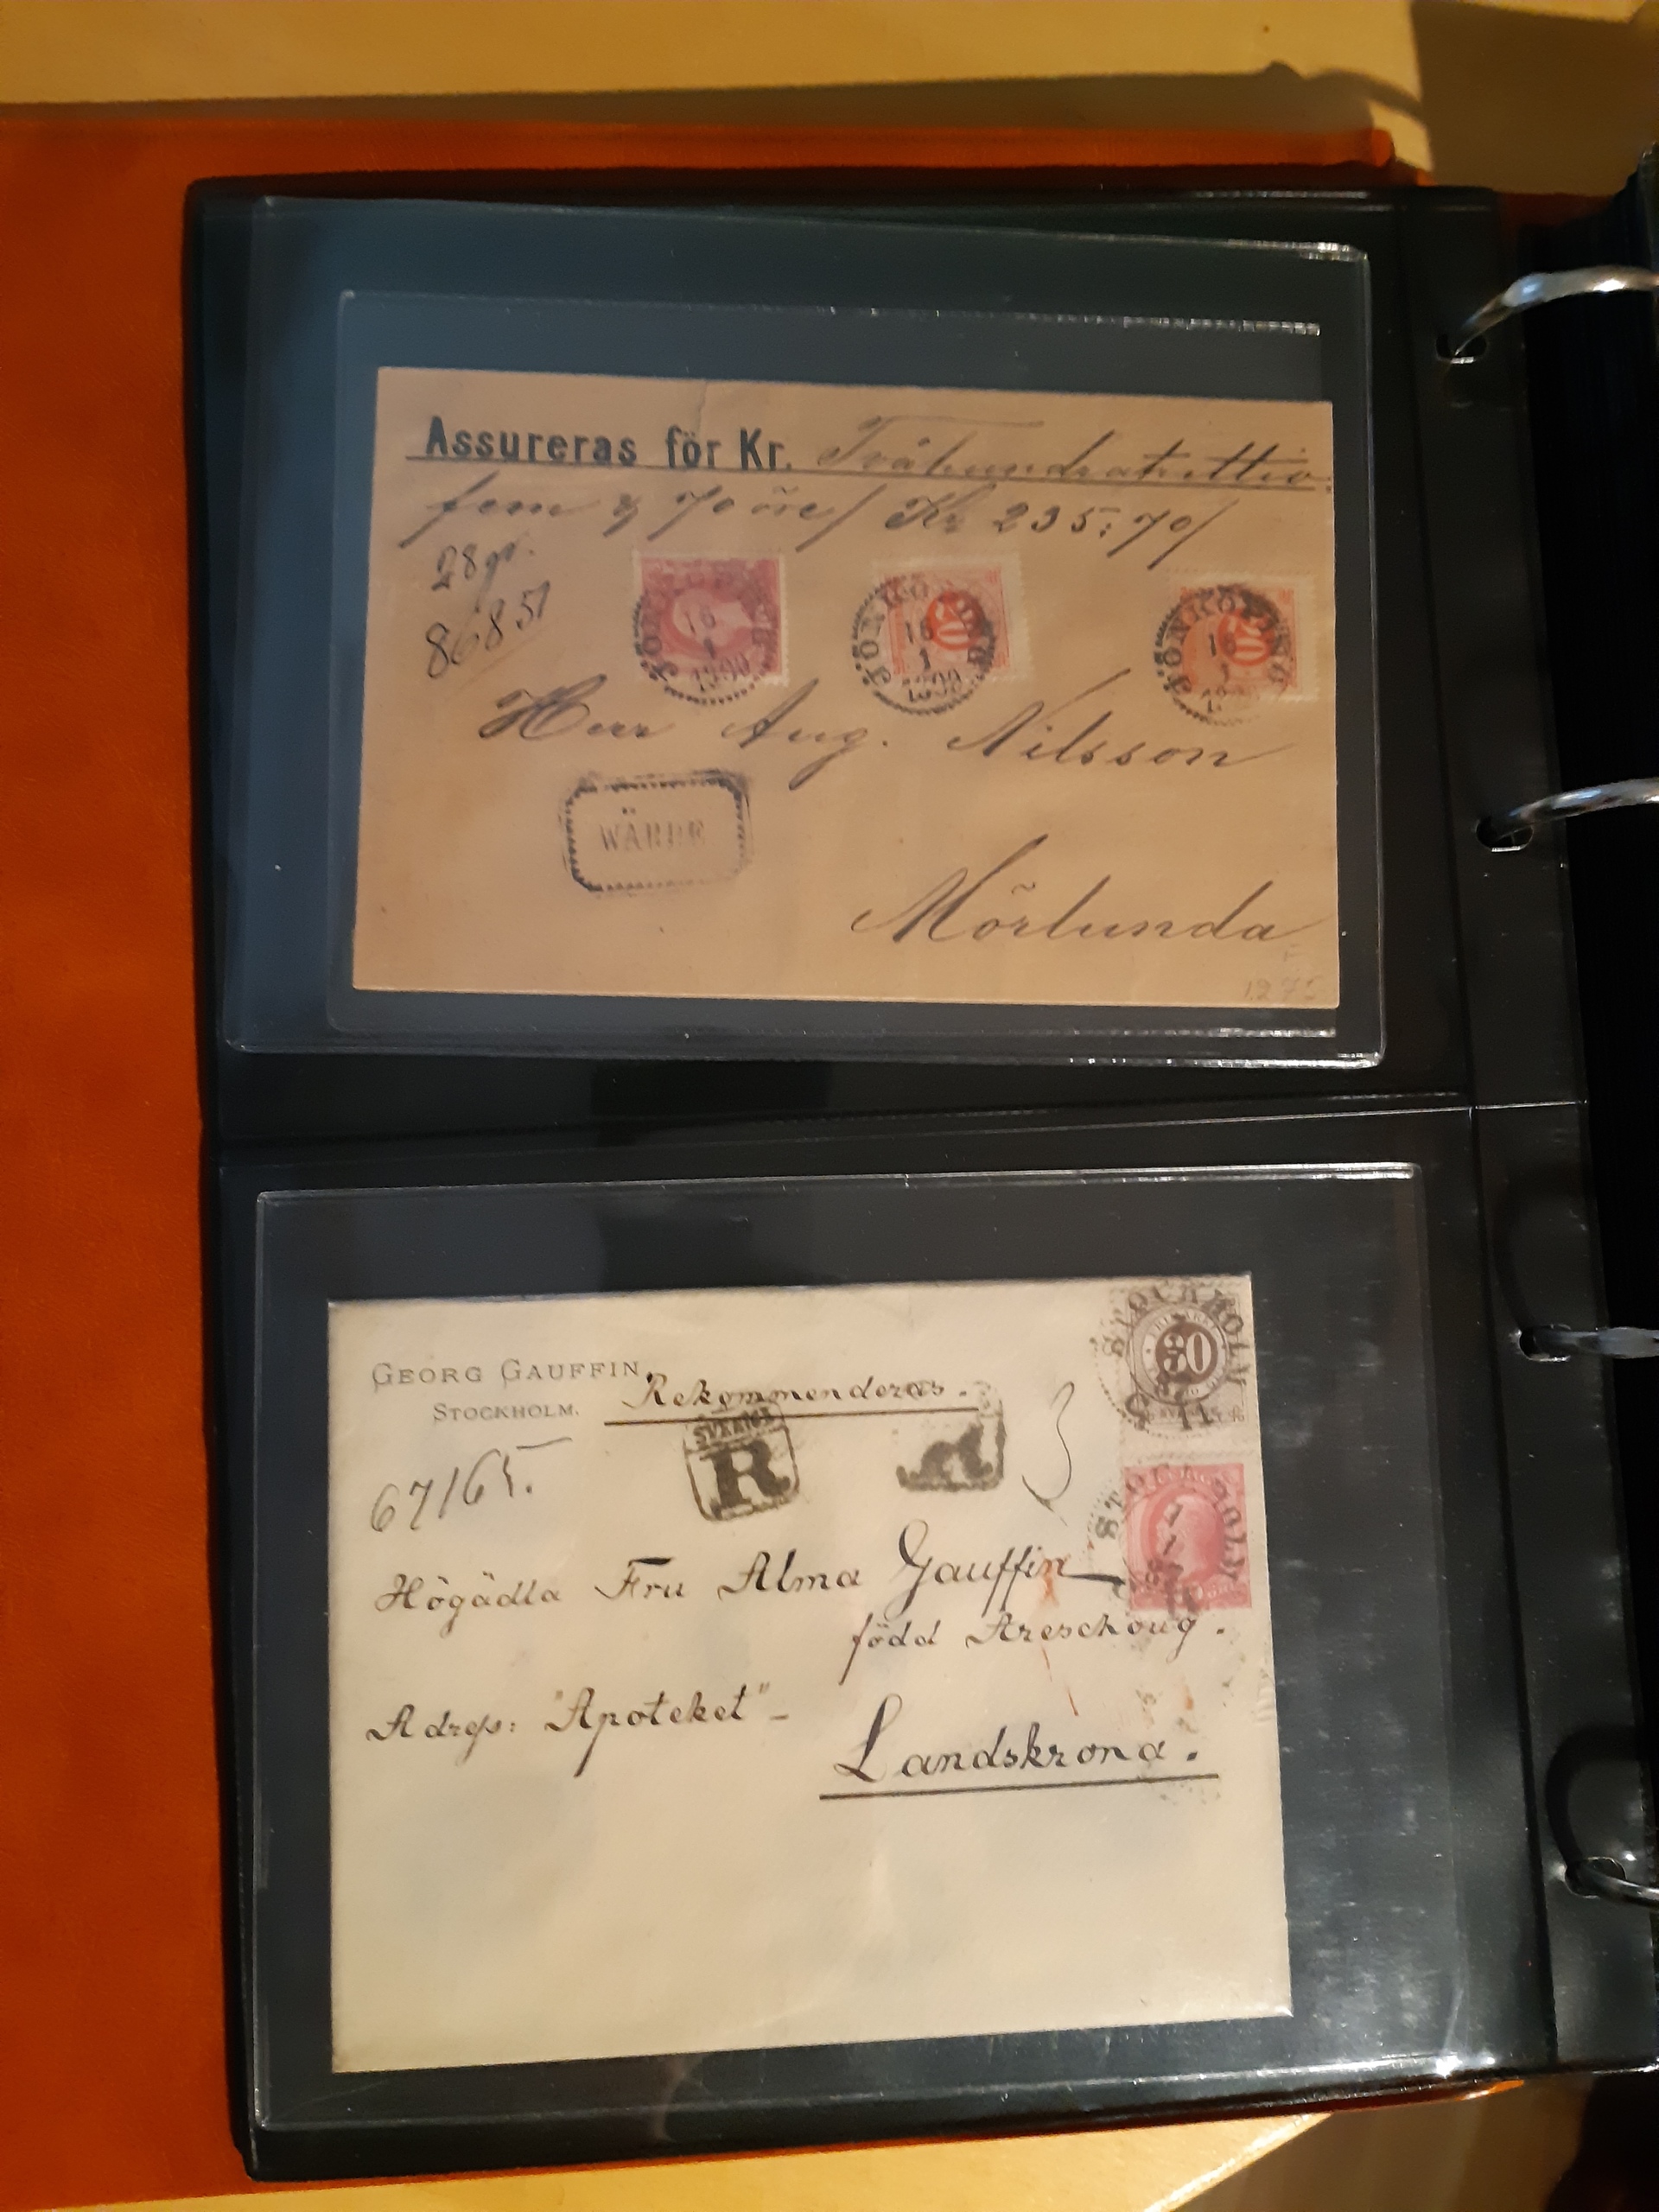 Assureras för Kr. Tvåhundratrettio
fem & 70 öre / Kr 235:70 /
28 gr.
86851
JÖNKÖPING
16
1
JÖNKÖPING
16
1
20
JÖNKÖPING
16
1
20
Herr Aug. Nilsson
WÄRDE
Mörlunda
GEORG GAUFFIN,
STOCKHOLM.
Rekommenderas.
STOCKHOLM
30
11
SVERIGE
R
67165.
3
STOCKHOLM
Högädla Fru Alma Gauffin
född Areschoug.
Adress: "Apoteket" -
Landskrona.